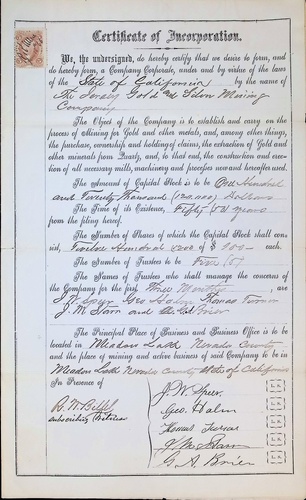 Certificate of Incorporation.
We, the undersigned, do hereby certify that we desire to form, and
do hereby form, a Company Corporate, under and by virtue of the laws
of the State of California by the name of
The Gold and Silver Mining
Company
The Object of the Company is to establish and carry on the
process of Mining for Gold and other metals, and, among other things,
the purchase, ownership and holding of claims, the extraction of Gold and
other minerals from Quartz, and, to that end, the construction and erec-
tion of all necessary mills, machinery and processes now and hereafter used.
The Amount of Capital Stock is to be One Hundred
and Twenty Thousand (120,000) Dollars
The Time of its Existence, Fifty (50) years
from the filing hereof.
The Number of Shares of which the Capital Stock shall con-
sist, Twelve Hundred of $ 100 each.
The Number of Trustees to be Five (5)
The Names of Trustees who shall manage the concerns of
the Company for the first Three Months, are:
J. W. Speer Geo Halm Thomas
J. M. and
The Principal Place of Business and Business Office is to be
located in Meadow Lake Nevada County and the
place of mining and active business of said Company to be in
Meadow Lake Nevada County State of California
In Presence of
J. W. Speer
Geo Halm
Thomas
subscribing Witness
G. A. Brier